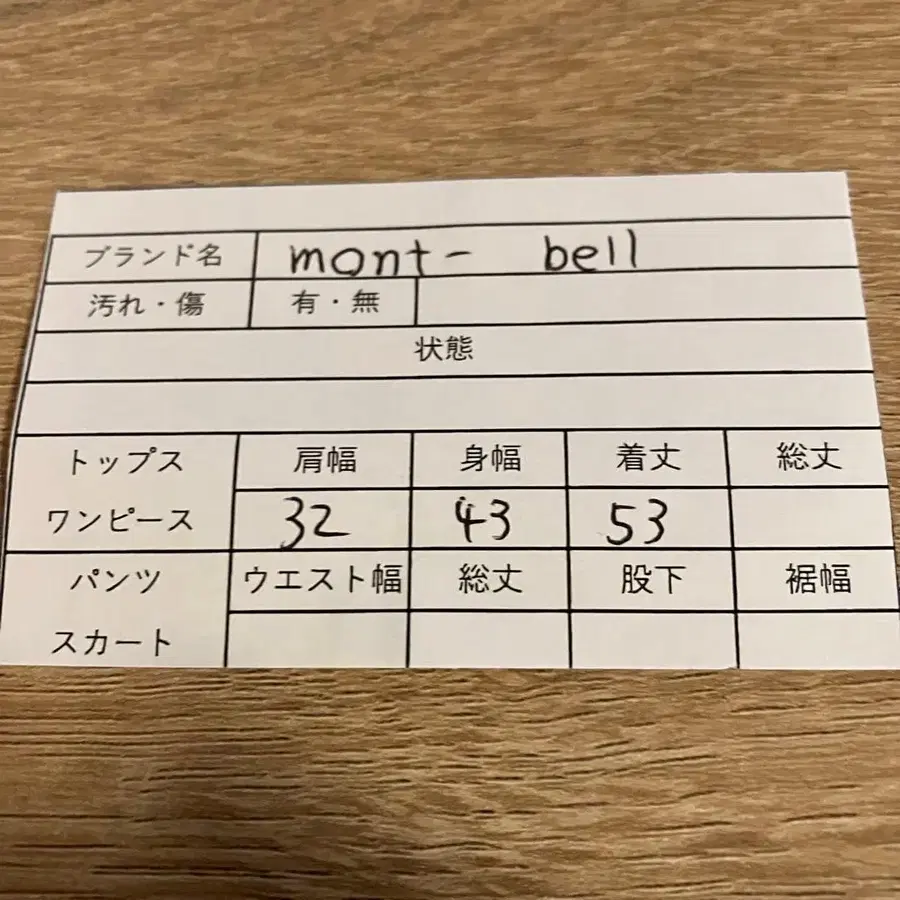 ブランド名 mont- bell
汚れ・傷 有・無
状態
トップス 肩幅 身幅 着丈 総丈
ワンピース 32 43 53
パンツ ウエスト幅 総丈 股下 裾幅
スカート